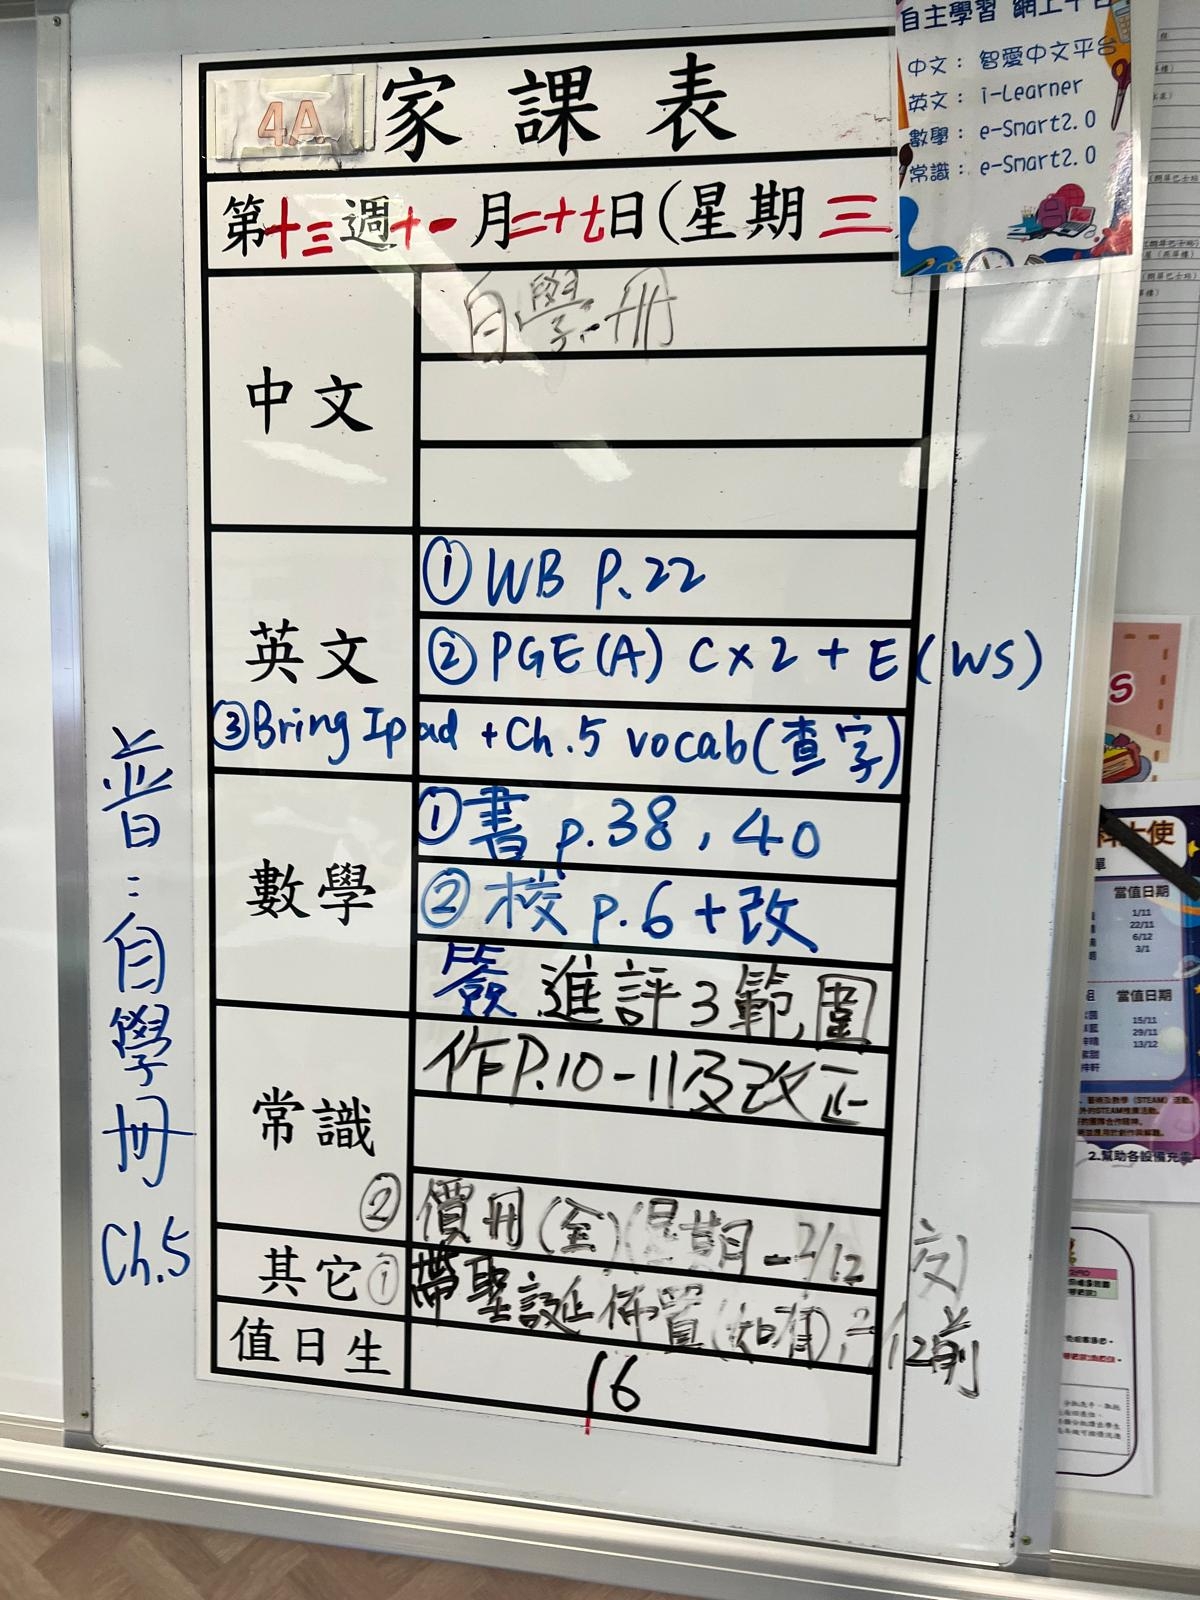 4A 家課表
第十三週十一月二十七日(星期三
中文
自學冊
英文
① WB P.22
② PGE(A) C x 2 + E (WS)
③ Bring Ipad + Ch.5 vocab (查字)
數學
① 書 p.38, 40
② 校 p.6 + 改
簽 進評3範圍
常識
作P.10-11及改正
② 價冊(全)(星期一 2/12 交)
其它
① 帶聖誕佈置(如有) 2/12前
值日生
16
普:自學冊 Ch.5
自主學習 網上平台
中文: 智愛中文平台
英文: i-Learner
數學: e-Smart2.0
常識: e-Smart2.0
S
大使
單
當值日期
1/11
22/11
6/12
3/1
組 當值日期
15/11
29/11
13/12
2.幫助各設備充電